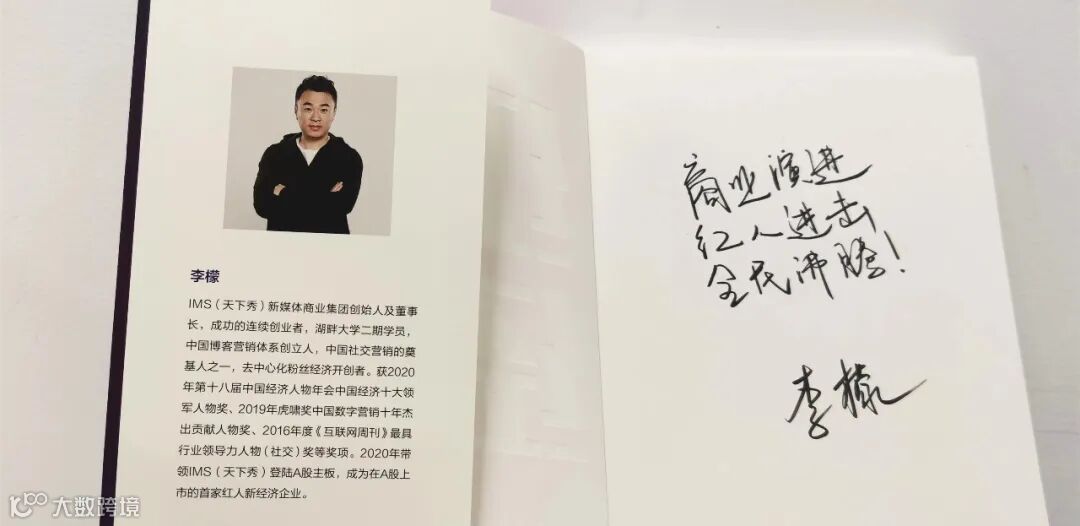 李檬
IMS（天下秀）新媒体商业集团创始人及董事
长，成功的连续创业者，湖畔大学二期学员，
中国博客营销体系创立人，中国社交营销的奠
基人之一，去中心化粉丝经济开创者。获2020
年第十八届中国经济人物年会中国经济十大领
军人物奖、2019年虎啸奖中国数字营销十年杰
出贡献人物奖、2016年度《互联网周刊》最具
行业领导力人物（社交）奖等奖项。2020年带
领IMS（天下秀）登陆A股主板，成为在A股上
市的首家红人新经济企业。
商业演进
红人进击
全民沸腾！
李檬
大数跨境